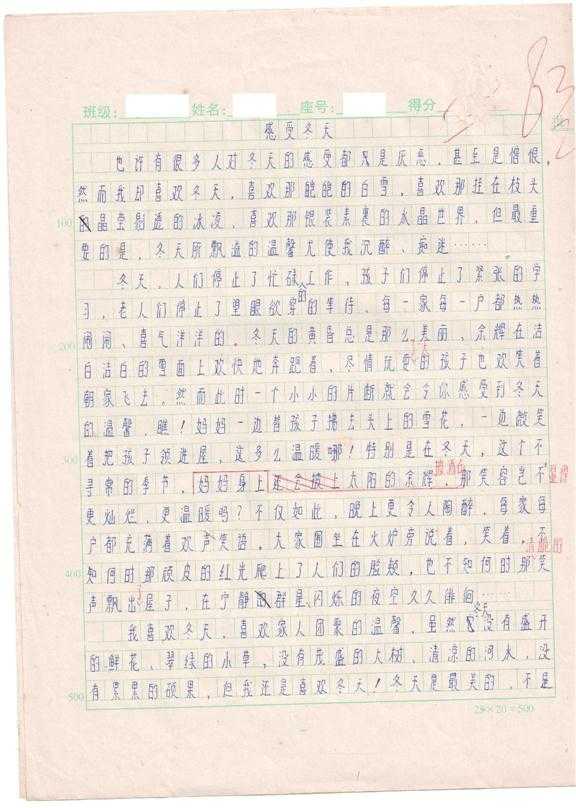 班级: 姓名: 座号: 得分
83
感受冬天
也许有很多人对冬天的感受都只是厌恶,甚至是憎恨。
然而我却喜欢冬天,喜欢那皑皑的白雪,喜欢那挂在枝头
100
的晶莹剔透的冰凌,喜欢那银装素裹的水晶世界,但最重
要的是,冬天所飘逸的温馨尤使我沉醉、痴迷……
冬天,人们停止了忙碌工作,孩子们停止了紧张的学
习,老人们停止了望眼欲穿的等待,每一家每一户都热热
闹闹、喜气洋洋的。冬天的黄昏总是那么美丽,余辉在洁
200
白洁白的雪面上欢快地奔跑着,尽情玩耍的孩子也欢笑着
朝家飞去。然而此时一个小小的片断就会令你感受到冬天
的温馨,瞧!妈妈一边替孩子拂去头上的雪花,一边微笑
着把孩子领进屋,这多么温暖哪!特别是在冬天,这个不
300
寻常的季节,妈妈身上还会披上太阳的余辉,那笑容岂不
披洒在
更灿烂,更温暖吗?不仅如此,晚上更令人陶醉,每家每
户都充满着欢声笑语,大家围坐在火炉旁说着,笑着,不
知何时那顽皮的红光爬上了人们的脸颊,也不知何时那笑
400
声飘出屋子,在宁静的群星闪烁的夜空久久徘徊……
冬天
我喜欢冬天,喜欢家人团聚的温馨,虽然没有盛开
的鲜花、翠绿的小草,没有茂盛的大树、清凉的河水,没
有累累的硕果,但我还是喜欢冬天!冬天是最美的,不是
500
25×20=500